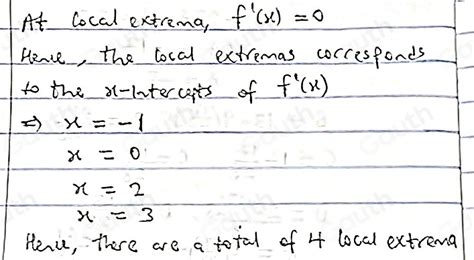 At local extrema, f'(x) = 0
Hence, the local extremas corresponds
to the x-Intercepts of f'(x)
⇒ x = -1
x = 0
x = 2
x = 3
Hence, there are a total of 4 local extrema